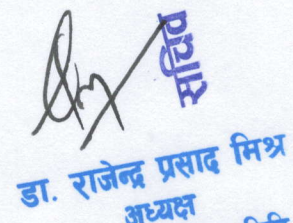 सचिव
डा. राजेन्द्र प्रसाद मिश्र
अध्यक्ष